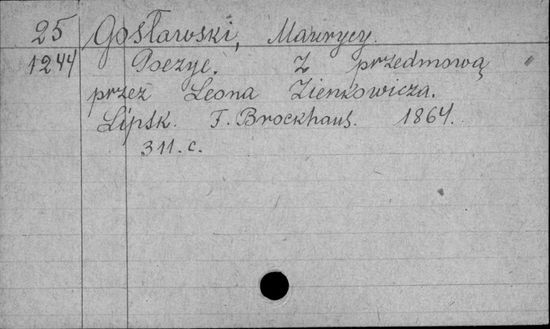 25 Gosławski, Maurycy.
1244 Poezye. Z przedmową
przez Leona Zienkowicza.
Lipsk. F. Brockhaus. 1864.
311. c.